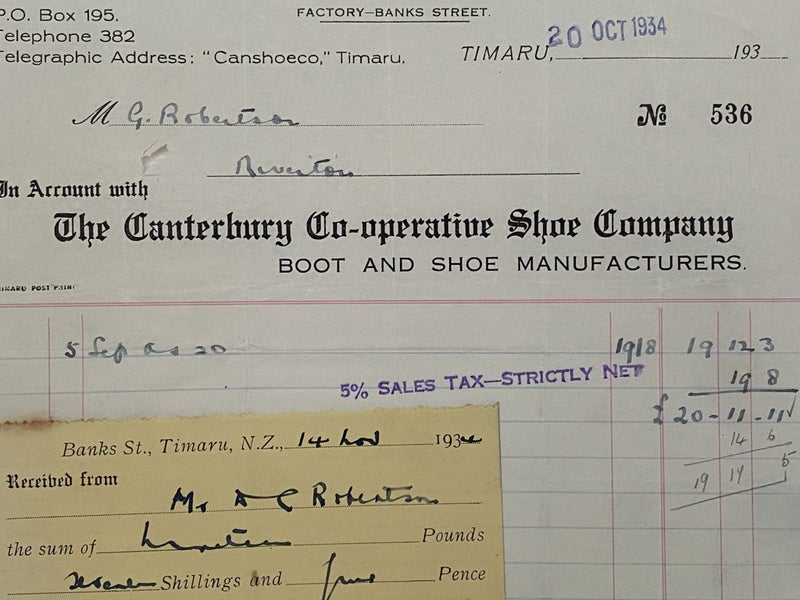 P.O. Box 195.
FACTORY—BANKS STREET.
Telephone 382
Telegraphic Address: "Canshoeco," Timaru.
TIMARU, 20 OCT 1934 193
M G. Robertson
No 536
Riverton
In Account with
The Canterbury Co-operative Shoe Company
BOOT AND SHOE MANUFACTURERS.
TIMARU POST PRINT
5 Sep 20 19/8 19 12 3
5% SALES TAX—STRICTLY NET
19 8
£ 20 - 11 - 11
14 6
19 17 5
Banks St., Timaru, N.Z., 14 Nov 1934
Received from
Mr A G Robertson
the sum of nineteen Pounds
seventeen Shillings and five Pence